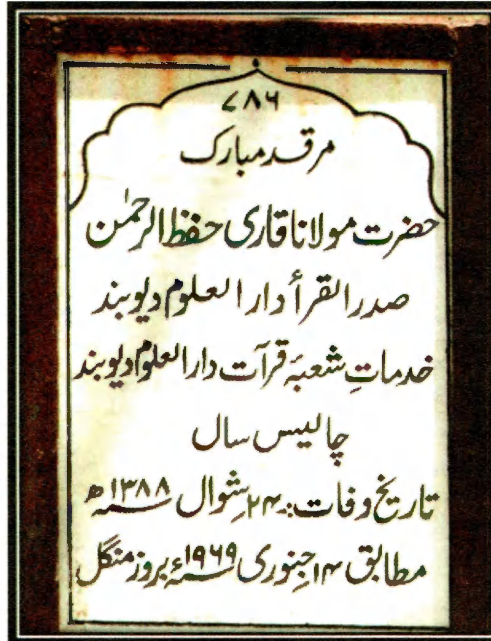 ۷۸۶
مرقد مبارک
حضرت مولانا قاری حفظ الرحمٰن
صدر القرأ دار العلوم دیوبند
خدماتِ شعبۂ قرآت دار العلوم دیوبند
چالیس سال
تاریخ وفات: ۲۴ شوال ۱۳۸۸ھ
مطابق ۱۴ جنوری ۱۹۶۹ء بروز منگل